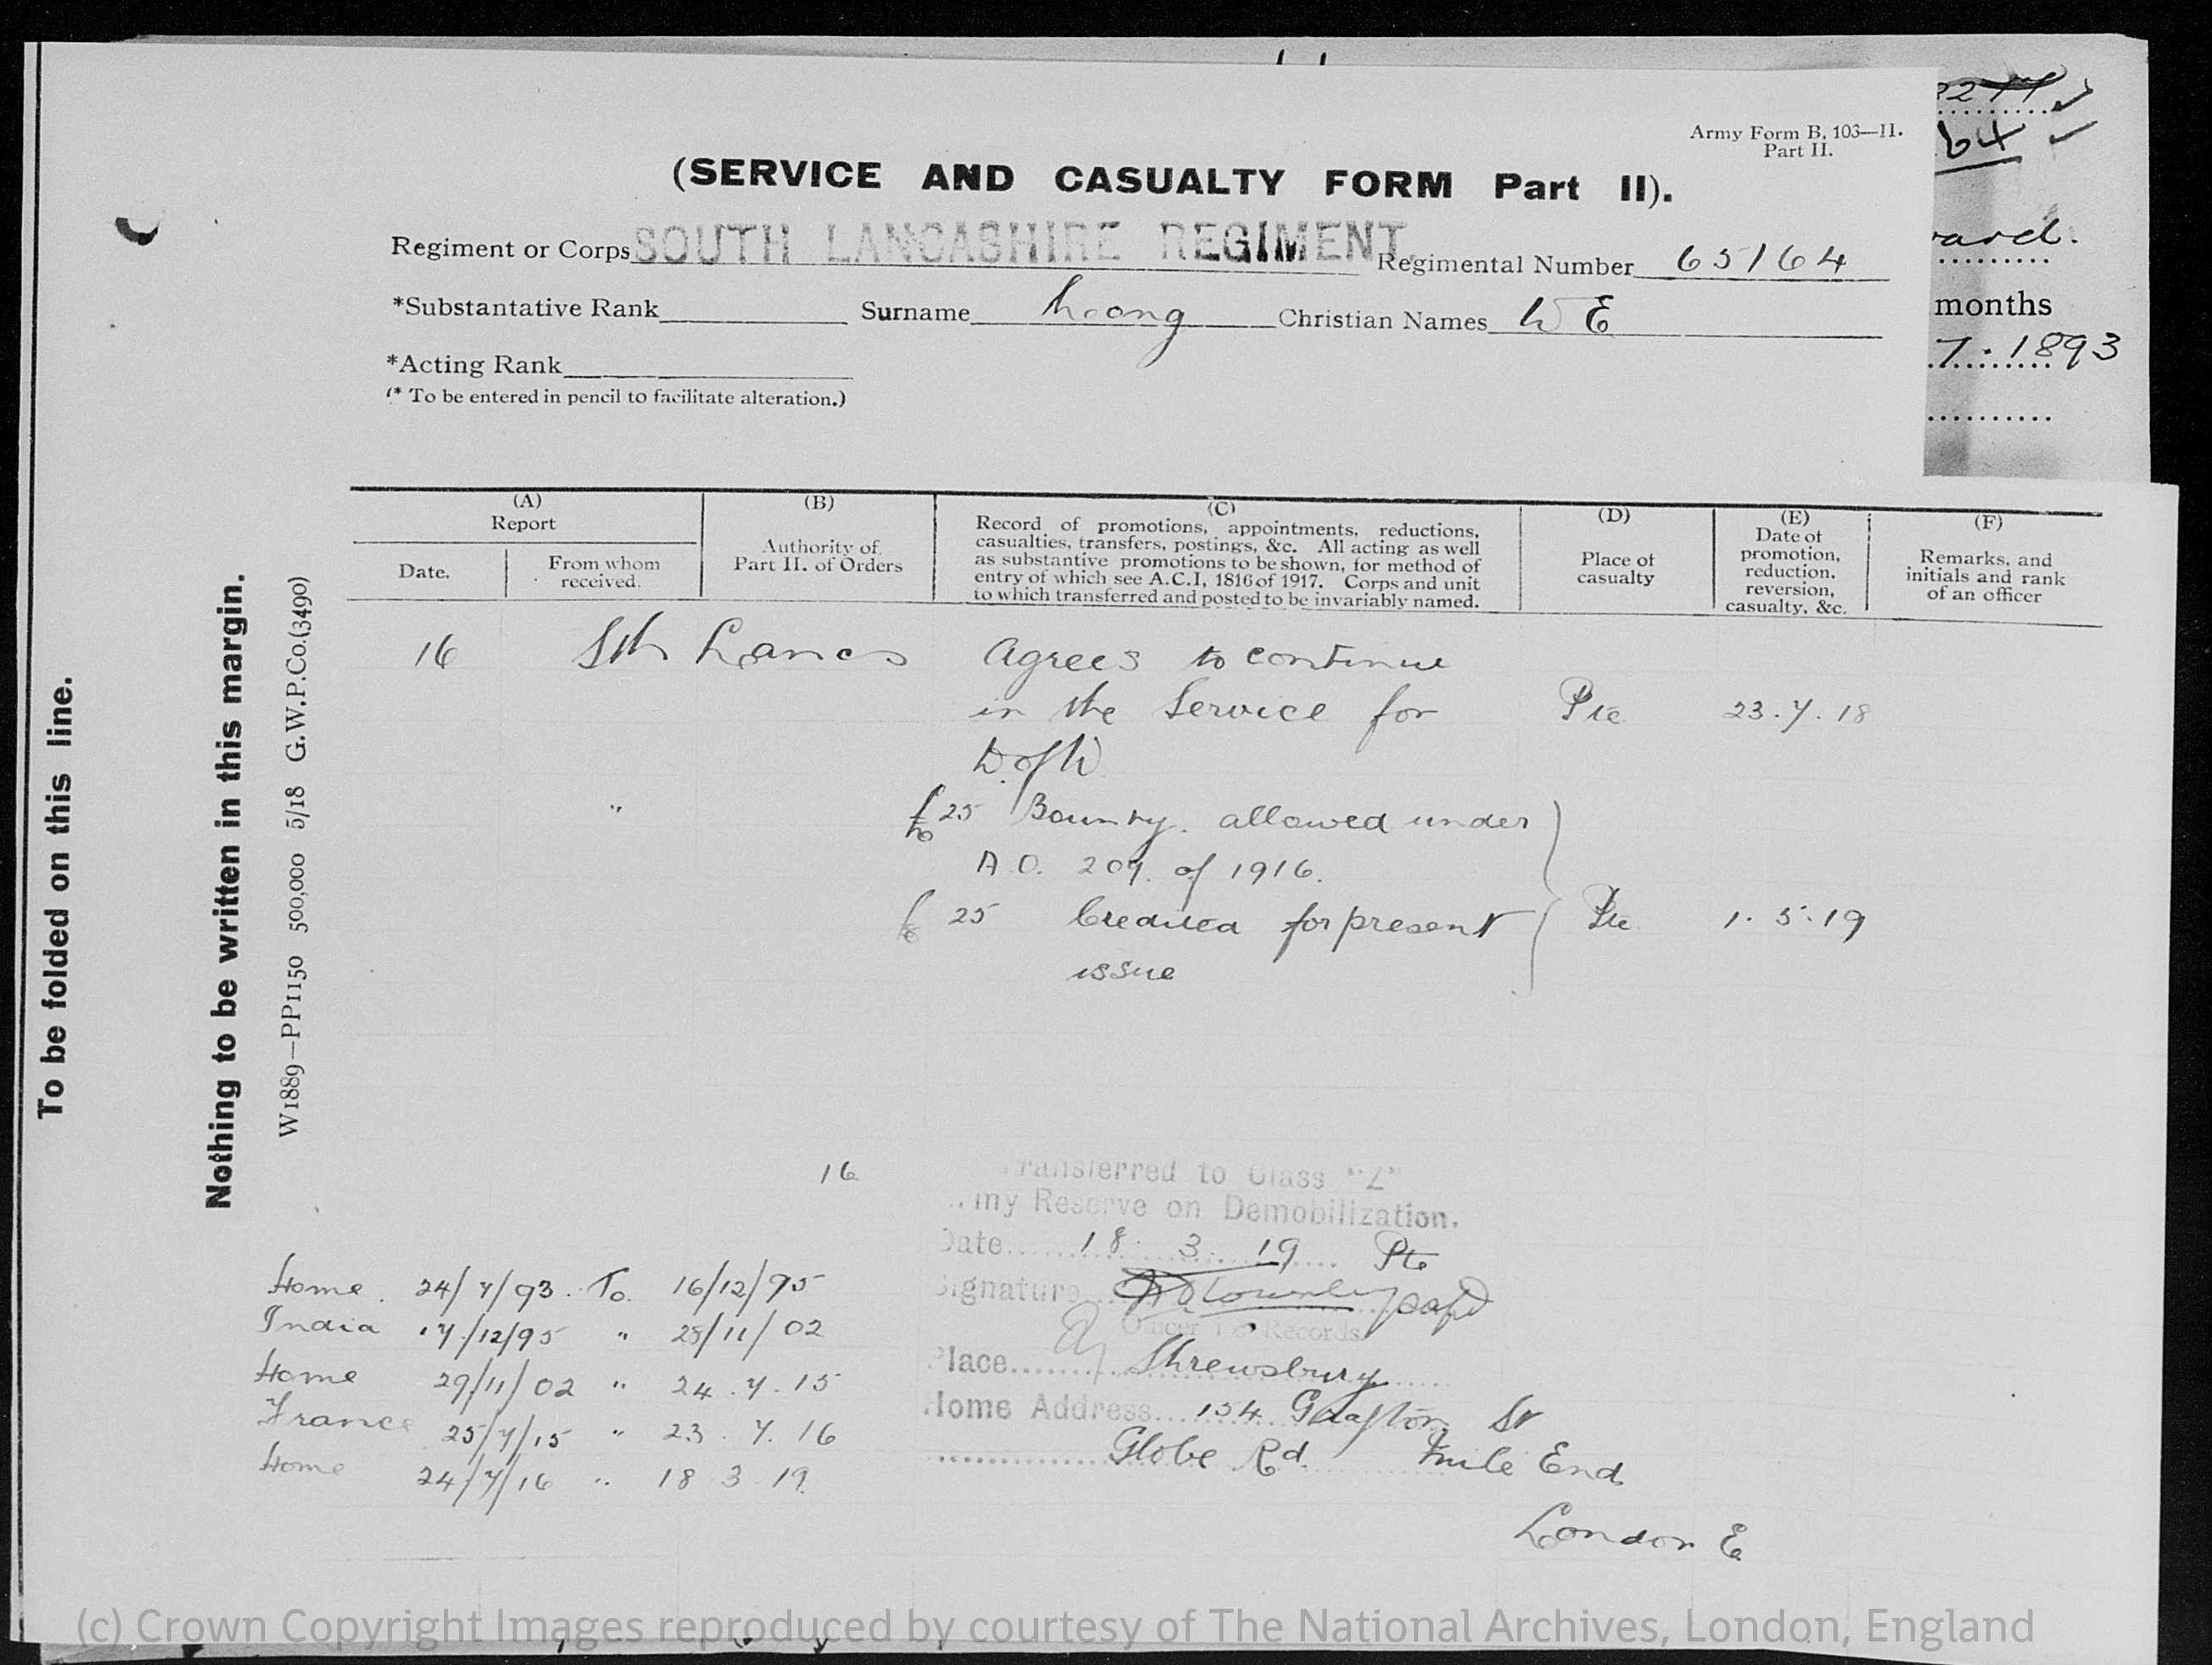 2211
64
ward.
months
7.1893
Army Form B. 103—II.
Part II.
(SERVICE AND CASUALTY FORM Part II).
Regiment or Corps SOUTH LANCASHIRE REGIMENT. Regimental Number 65164
*Substantative Rank Surname Long Christian Names W E
*Acting Rank
(* To be entered in pencil to facilitate alteration.)
To be folded on this line.
Nothing to be written in this margin.
W1889—PP1150 500,000 5/18 G.W.P.Co.(3490)
(A)
Report
Date.
From whom
received.
(B)
Authority of
Part II. of Orders
(C)
Record of promotions, appointments, reductions,
casualties, transfers, postings, &c. All acting as well
as substantive promotions to be shown, for method of
entry of which see A.C.I, 1816 of 1917. Corps and unit
to which transferred and posted to be invariably named.
(D)
Place of
casualty
(E)
Date of
promotion,
reduction,
reversion,
casualty, &c.
(F)
Remarks, and
initials and rank
of an officer
16 Sth Lancs Agrees to continue
in the Service for Pte 23.7.18
D of W
" £25 Bounty. allowed under
A.O. 209. of 1916.
£ 25 Credited for present Pte. 1.5.19
issue
16 Transferred to Class "Z"
Army Reserve on Demobilization.
Date 18. 3. 19 Pte
Signature
Officer Records
Place Shrewsbury
Home Address 154 Grafton St
Globe Rd. Mile End
London E
Home. 24/7/93. To. 16/12/95
India 17/12/95 " 28/11/02
Home 29/11/02 " 24.7.15
France 25/7/15 " 23.7.16
Home 24/7/16 " 18 3 19.
(c) Crown Copyright Images reproduced by courtesy of The National Archives, London, England